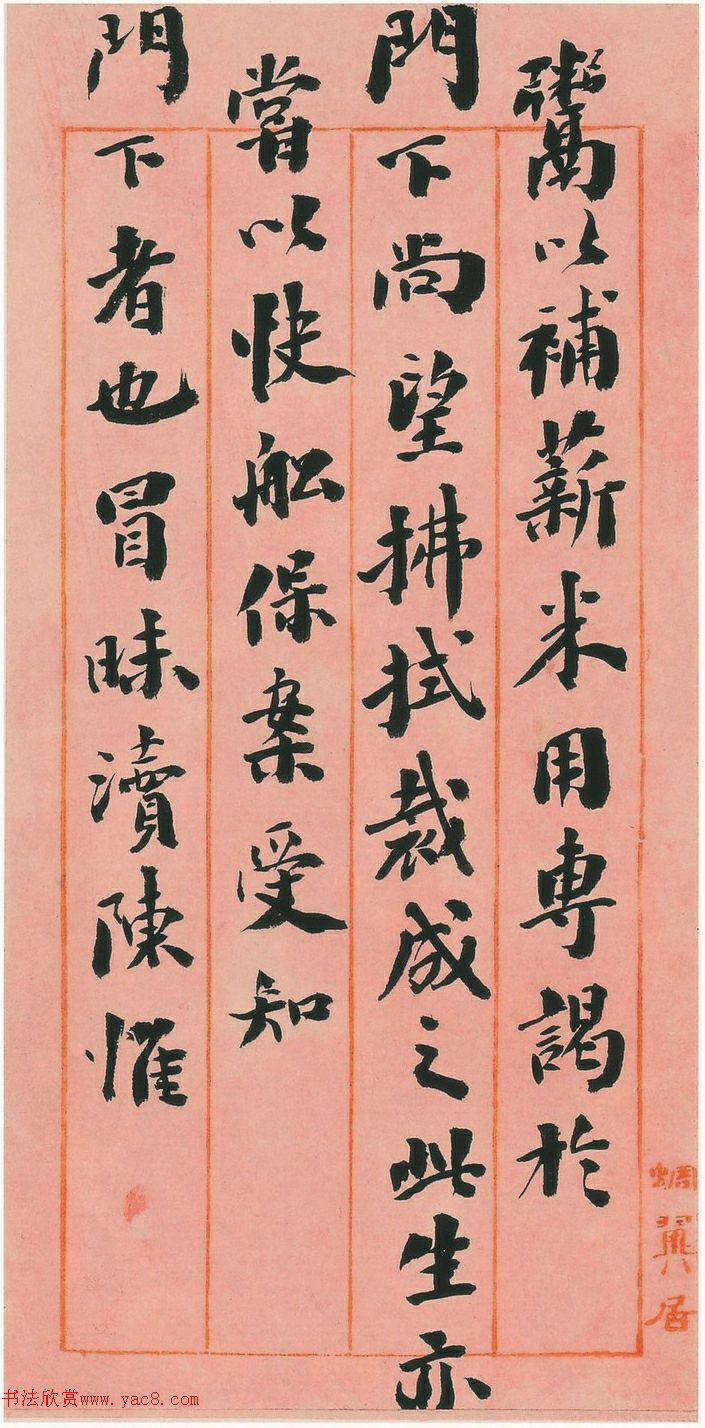 鬻以補薪米用専謁於
門下尚望拂拭裁成之此生亦
嘗以快船保案受知
門下者也冒昧瀆陳惟
蜩翼居
书法欣赏www.yac8.com